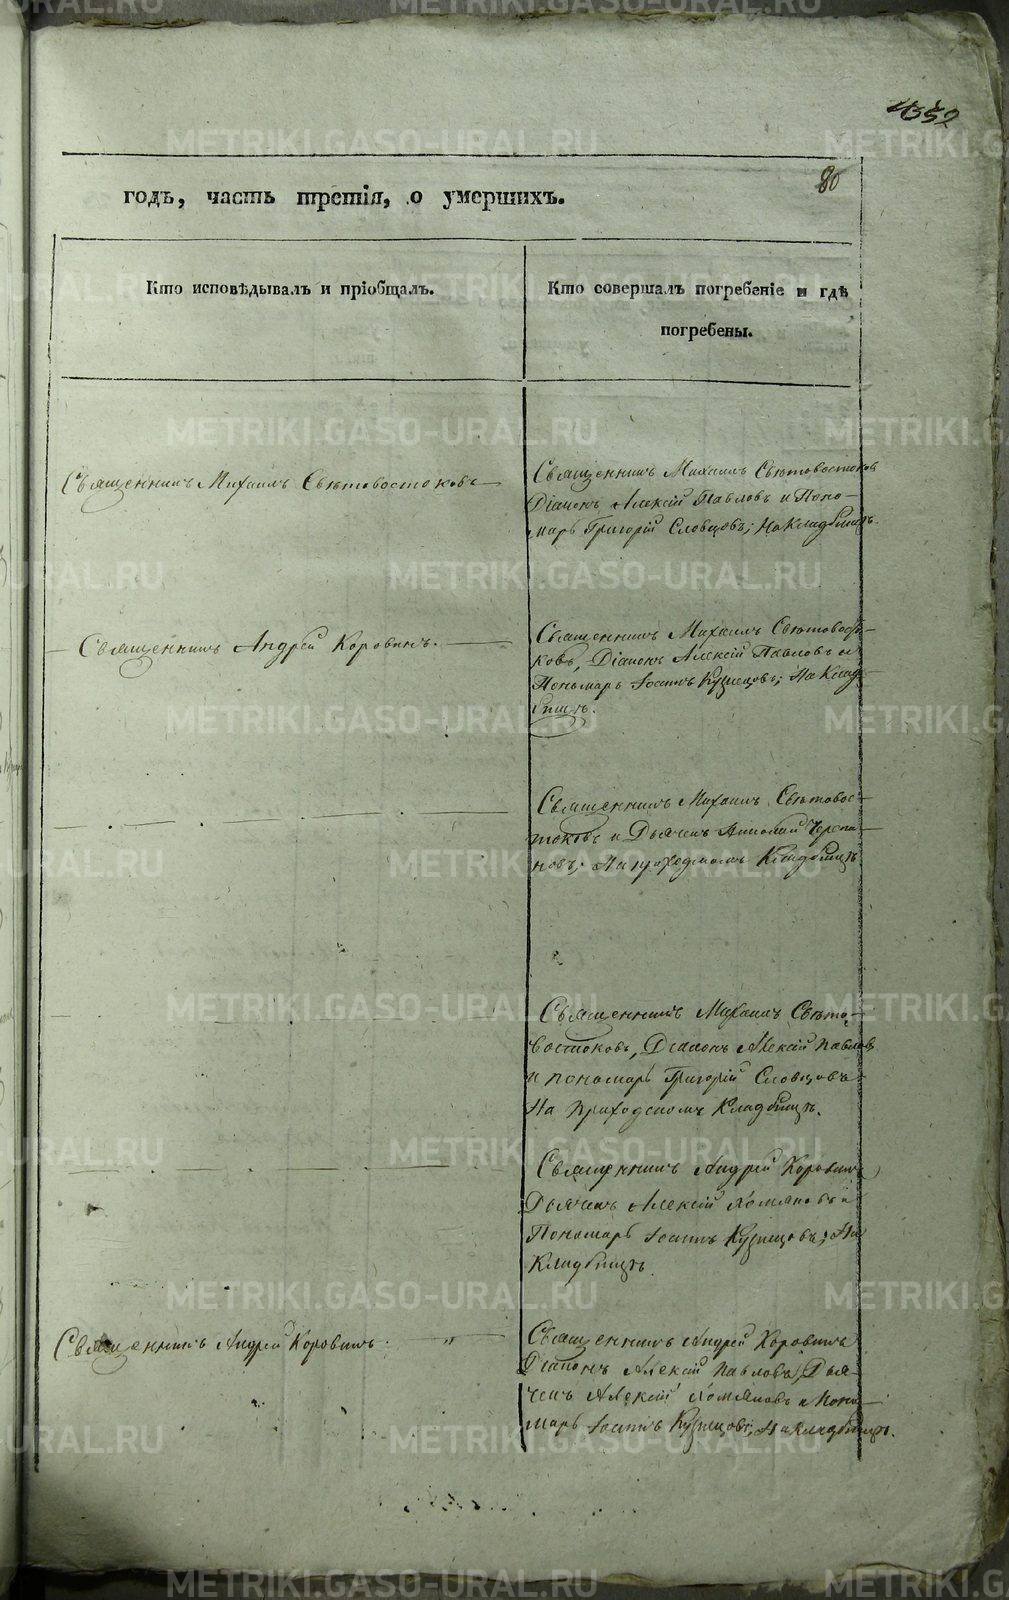 80
годъ, часть третія, о умершихъ.
Кто исповѣдывалъ и пріобщалъ.
Кто совершалъ погребеніе и гдѣ
погребены.
Священникъ Михаилъ Свѣтовостоковъ
Священникъ Михаилъ Свѣтовостоков
Діаконъ Алексій Павловъ и Поно-
марь Григорій Словцовъ; на Кладбищѣ.
Священникъ Андрей Коровинъ.
Священникъ Михаилъ Свѣтовосто-
ковъ, Діаконъ Алексій Павловъ и
Пономарь Іоаннъ Кузнецовъ; На Клад-
бищѣ.
Священникъ Михаилъ Свѣтовос-
токовъ и Дьячекъ Черепа-
новъ; На приходскомъ Кладбищѣ
Священникъ Михаилъ Свѣто-
востоковъ, Діаконъ Алексій Павловъ
и пономарь Григорій Словцовъ
На Приходскомъ Кладбищѣ.
Священникъ Андрей Коровинъ
Дьячекъ Алексій Хомяковъ и
Пономарь Іоаннъ Кузнецовъ; На
Кладбищѣ.
Священникъ Андрей Коровинъ.
Священникъ Андрей Коровинъ
Діаконъ Алексій Павловъ, Дья-
чекъ Алексій Хомяковъ и Поно-
марь Іоаннъ Кузнецовъ; На кладбищѣ.
METRIKI.GASO-URAL.RU